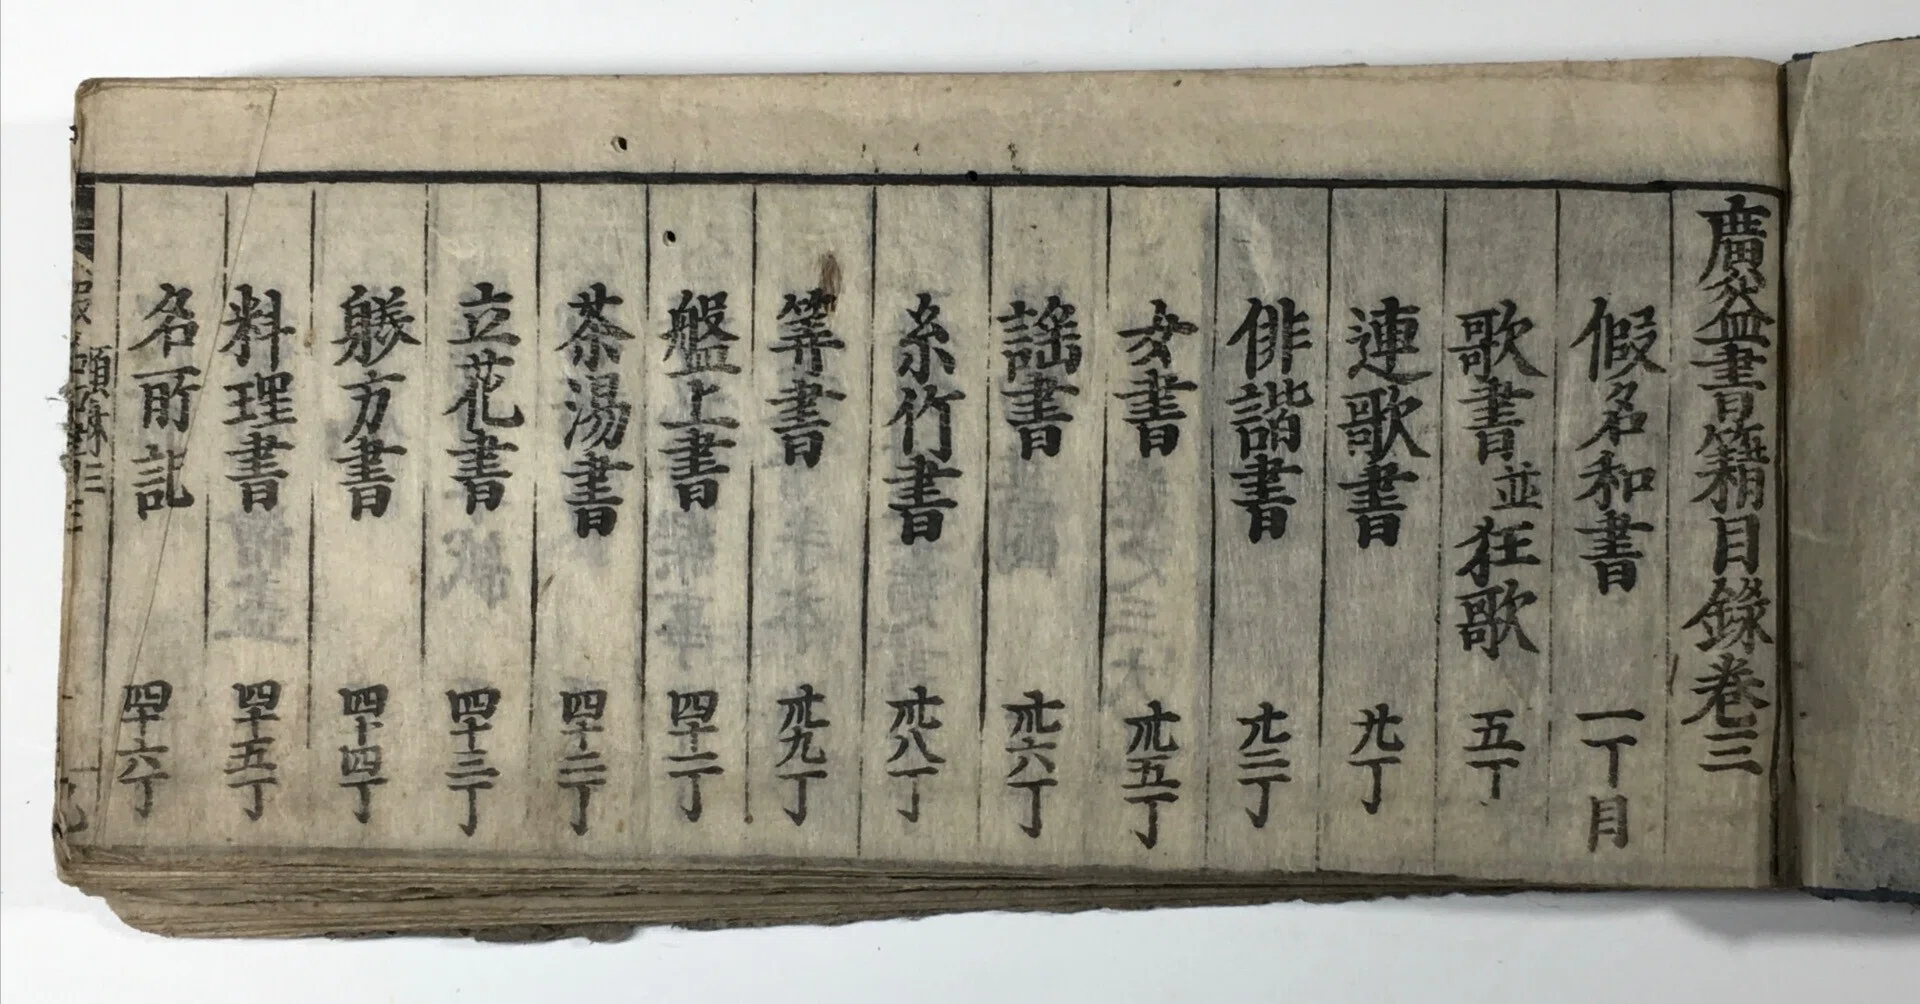 廣益書籍目錄卷三
假名和書 一丁目
歌書並狂歌 五丁
連歌書 廿丁
俳諧書 廿二丁
女書 卅五丁
謡書 卅六丁
糸竹書 卅八丁
筭書 卅九丁
盤上書 四十一丁
茶湯書 四十二丁
立花書 四十三丁
躾方書 四十四丁
料理書 四十五丁
名所記 四十六丁